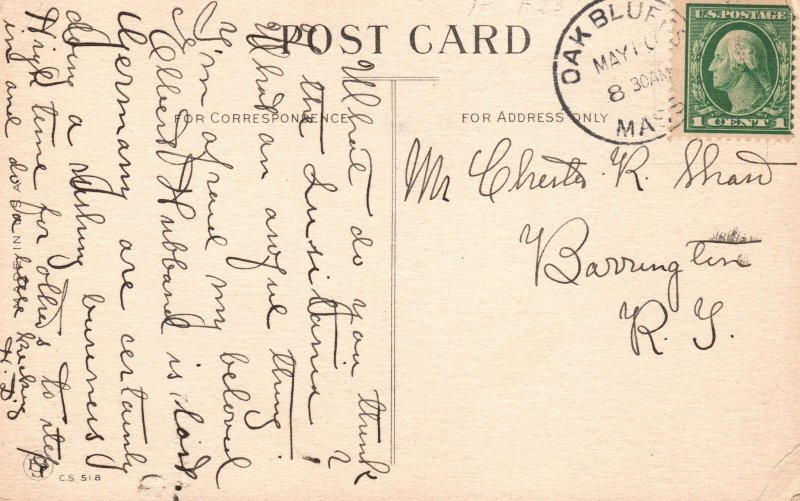 POST CARD
FOR CORRESPONDENCE
FOR ADDRESS ONLY
OAK BLUFFS
MAY 10
8 30AM
MASS
U.S. POSTAGE
1 CENT 1
Mr Chester R. Shaw
Barrington
R. I.
What do you think
of the Lusitania?
What an awful thing!
I'm afraid my beloved
Elbert Hubbard is lost.
Germany are certainly
doing a rushing business
High time for others to step
in and do a little kicking
H. D.
C.S. 518